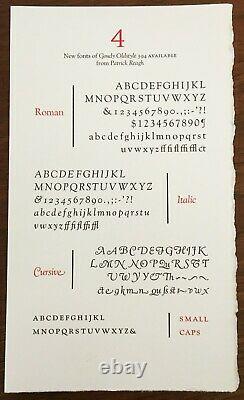 4
New fonts of Goudy Oldstyle 394 AVAILABLE
from Patrick Reagh
Roman
ABCDEFGHIJKL
MNOPQRSTUVWXYZ
&1234567890.,;:-'?!
$1234567890¶
abcdefghijklmnopqrst
uvwxyzfffiflffifflct
ABCDEFGHIJKL
MNOPQRSTUVWXYZ
&1234567890.,;:-'?!
abcdefghijklmnopqrst
uvwxyzfffiflffiffl
Italic
Cursive
AABCDEGHJK
LMNOPQuRST
UVWYYTh
SMALL
CAPS
ABCDEFGHIJKL
MNOPQRSTUVWXYZ&
© 1stBooks.com